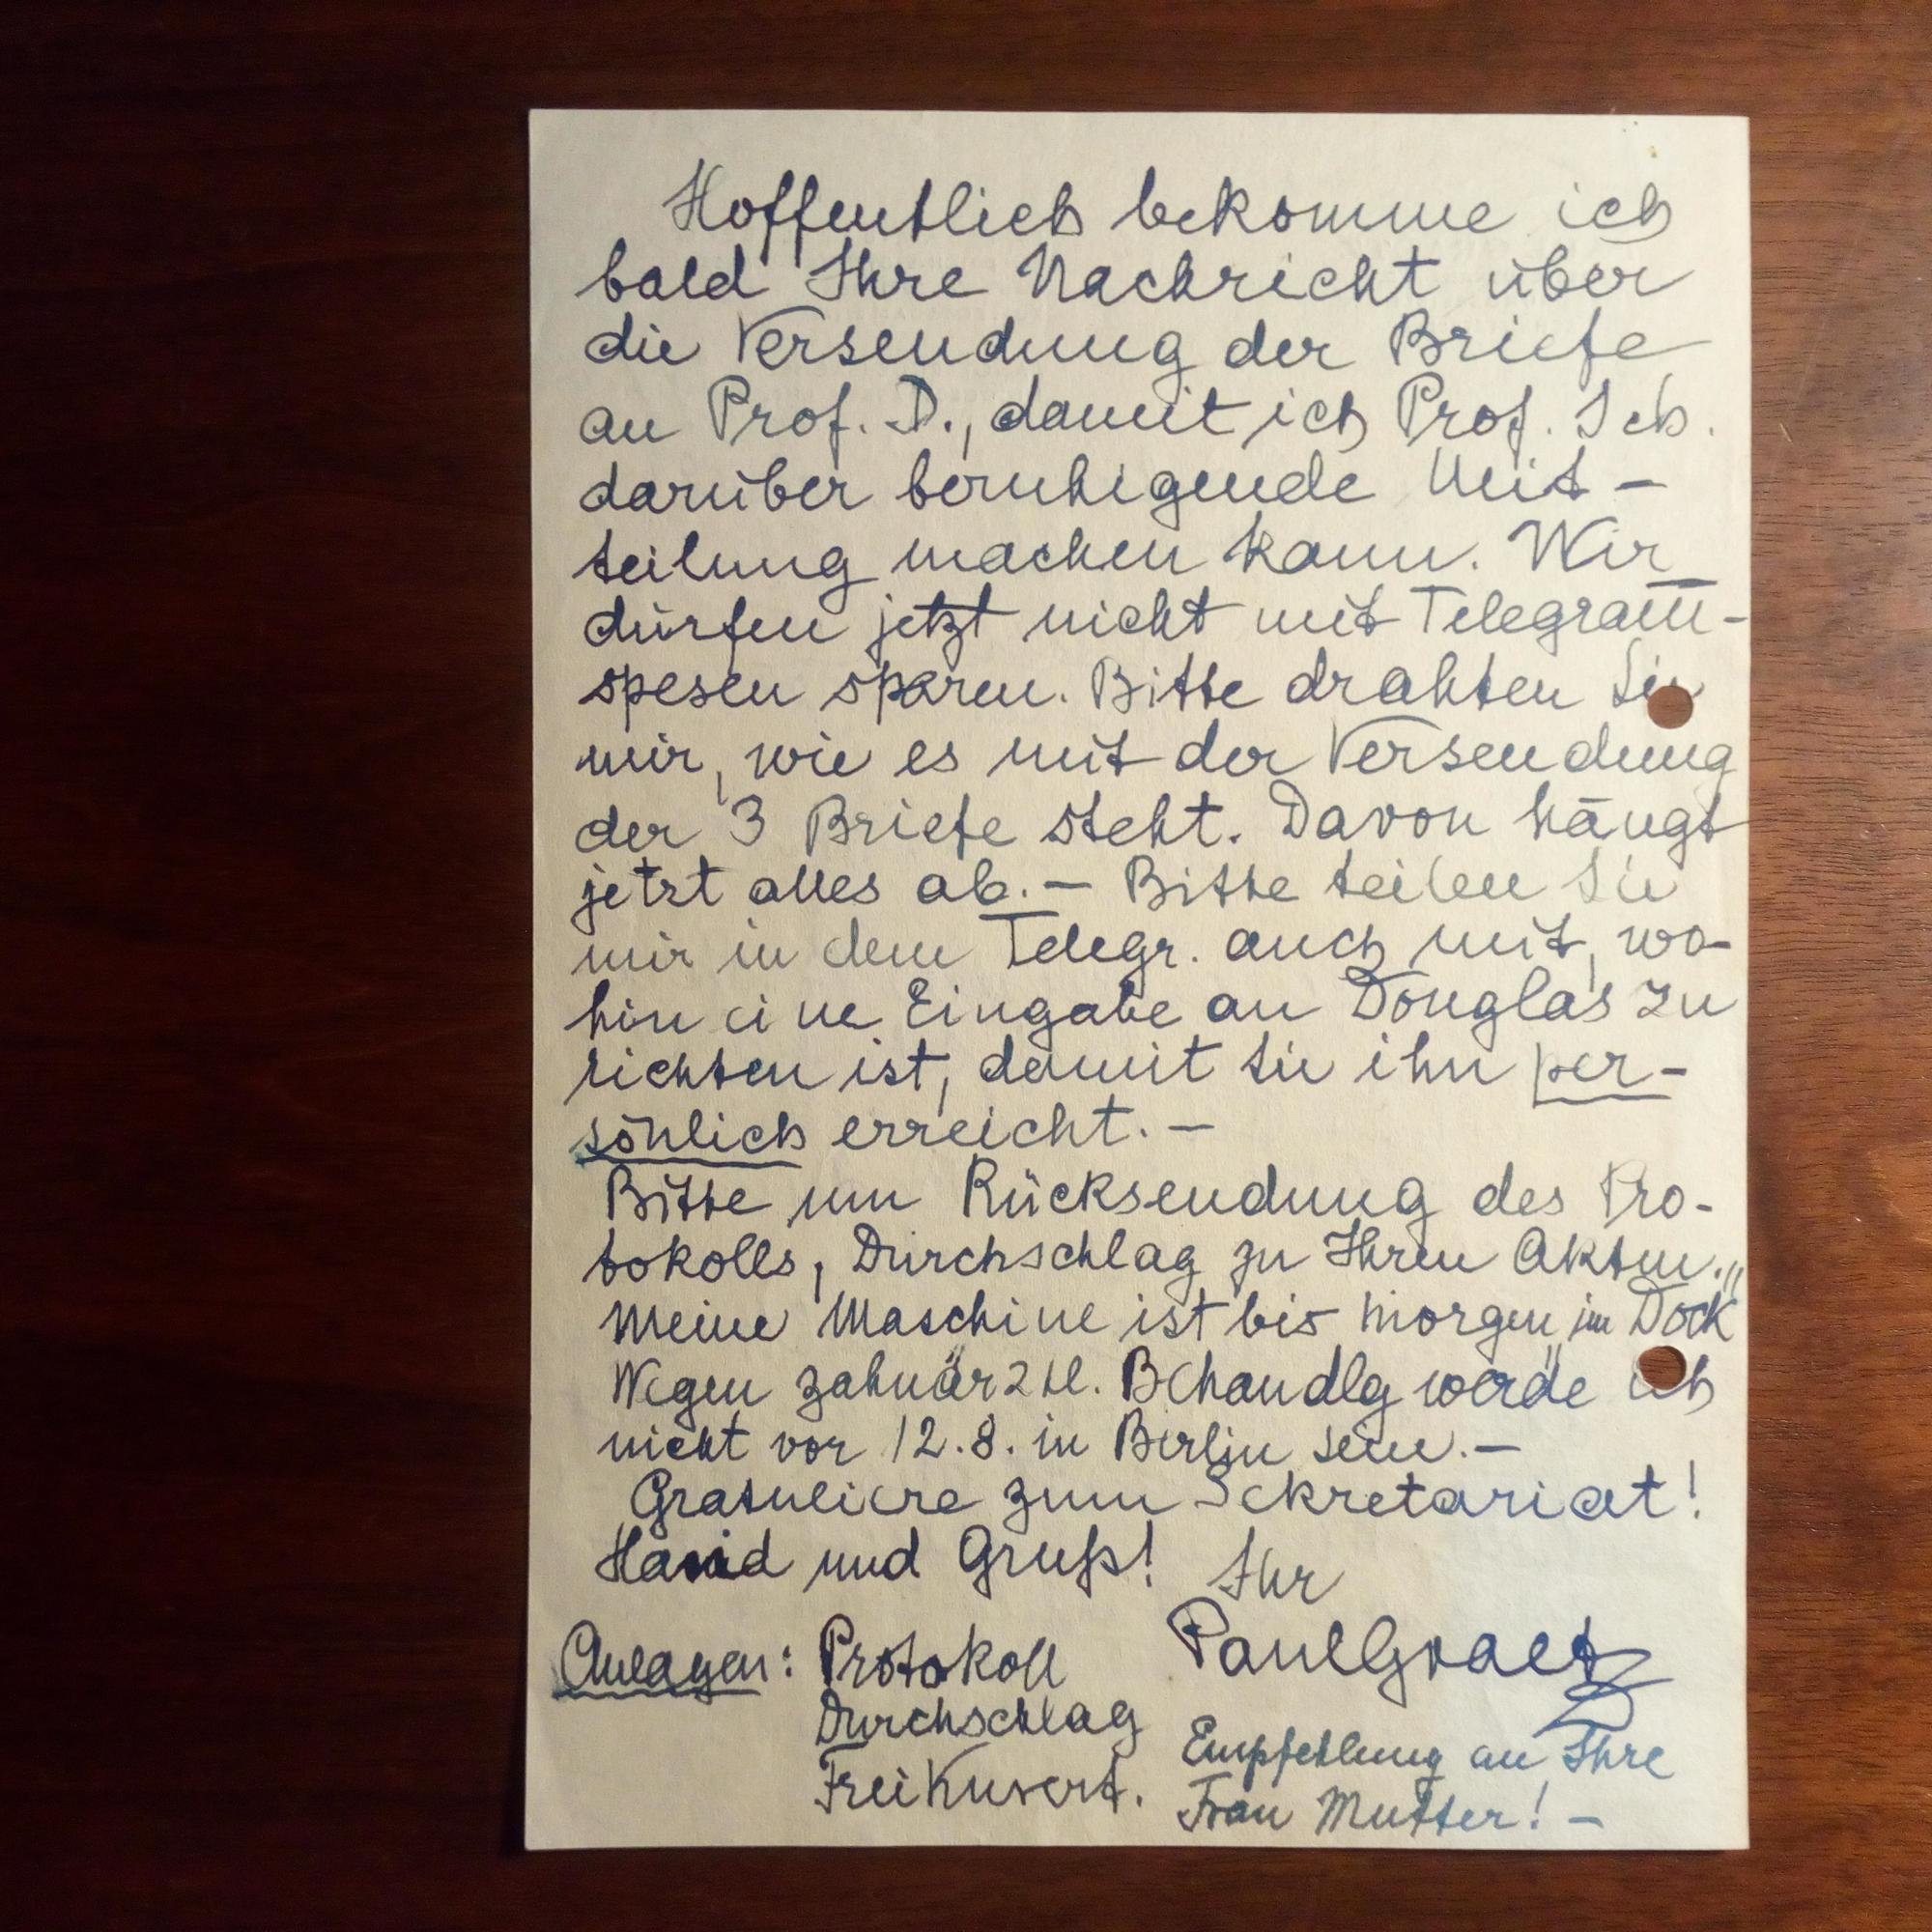 Hoffentlich bekomme ich
bald Ihre Nachricht über
die Versendung der Briefe
an Prof. D., damit ich Prof. Sch.
darüber beruhigende Mit-
teilung machen kann. Wir
dürfen jetzt nicht mit Telegram̅-
spesen sparen. Bitte drahten Sie
mir, wie es mit der Versendung
der 3 Briefe steht. Davon hängt
jetzt alles ab. – Bitte teilen Sie
mir in dem Telegr. auch mit, wo-
hin eine Eingabe an Douglas zu
richten ist, damit sie ihn per-
sönlich erreicht. –
Bitte um Rücksendung des Pro-
tokolls, Durchschlag zu Ihren Akten.
Meine Maschine ist bis morgen im "Dock"
Wegen zahnärztl. Behandlg werde ich
nicht vor 12.8. in Berlin sein. –
Gratuliere zum Sekretariat!
Hand und Gruß! Ihr
Paul Graetz
Anlagen: Protokoll
Durchschlag
Freikuvert.
Empfehlung an Ihre
Frau Mutter! –